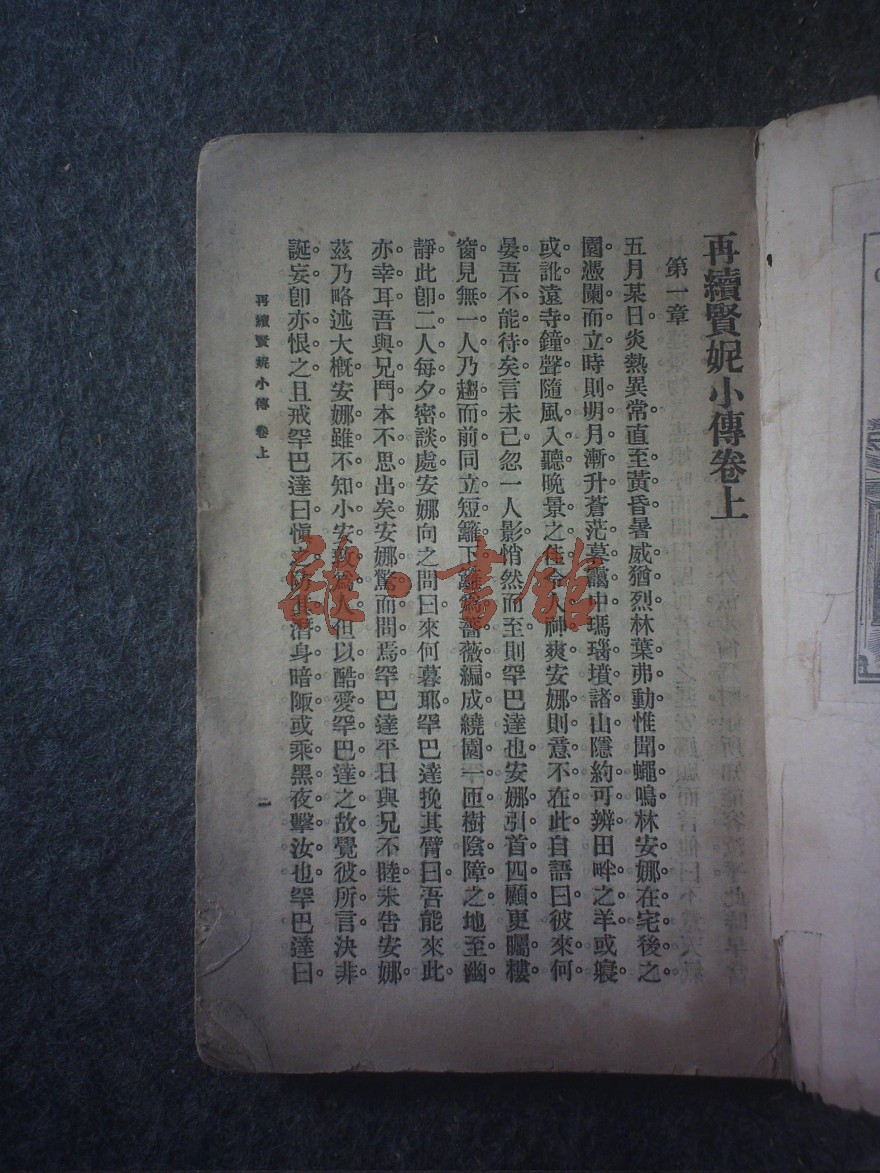 再續賢妮小傳卷上
第一章
五月某日炎熱異常。直至黃昏暑威猶烈。林葉弗動。惟聞蠅鳴。林安娜在宅後之
園憑闌而立。時則明月漸升。蒼茫暮靄中。瑪瑙墳諸山隱約可辨。田畔之羊或寢。
或訛。遠寺鐘聲隨風入聽。晚景之佳。令人神爽。安娜則意不在此。自語曰。彼來何
晏。吾不能待矣。言未已。忽一人影悄然而至。則罕巴達也。安娜引首四顧。更矚樓
窗。見無一人。乃趨而前。同立短籬下。籬為薔薇編成。繞園一匝。樹陰障之。地至幽
靜。此卽二人每夕密談處。安娜向之問曰。來何暮耶。罕巴達挽其臂曰。吾能來此
亦幸耳。吾與兄鬥。本不思出矣。安娜驚而問焉。罕巴達平日與兄不睦。未告安娜。
茲乃略述大槪。安娜雖不知小安敦為人。但以酷愛罕巴達之故。覺彼所言決非
誕妄。卽亦恨之。且戒罕巴達曰。愼之。防其潛身暗陬。或乘黑夜擊汝也。罕巴達曰。
再續賢妮小傳 卷上
二
雜·書館